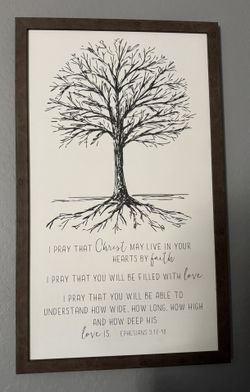 I PRAY THAT Christ MAY LIVE IN YOUR
HEARTS BY faith
I PRAY THAT YOU WILL BE FILLED WITH love.
I PRAY THAT YOU WILL BE ABLE TO
UNDERSTAND HOW WIDE, HOW LONG, HOW HIGH
AND HOW DEEP HIS
love IS. EPHESIANS 3:17-18